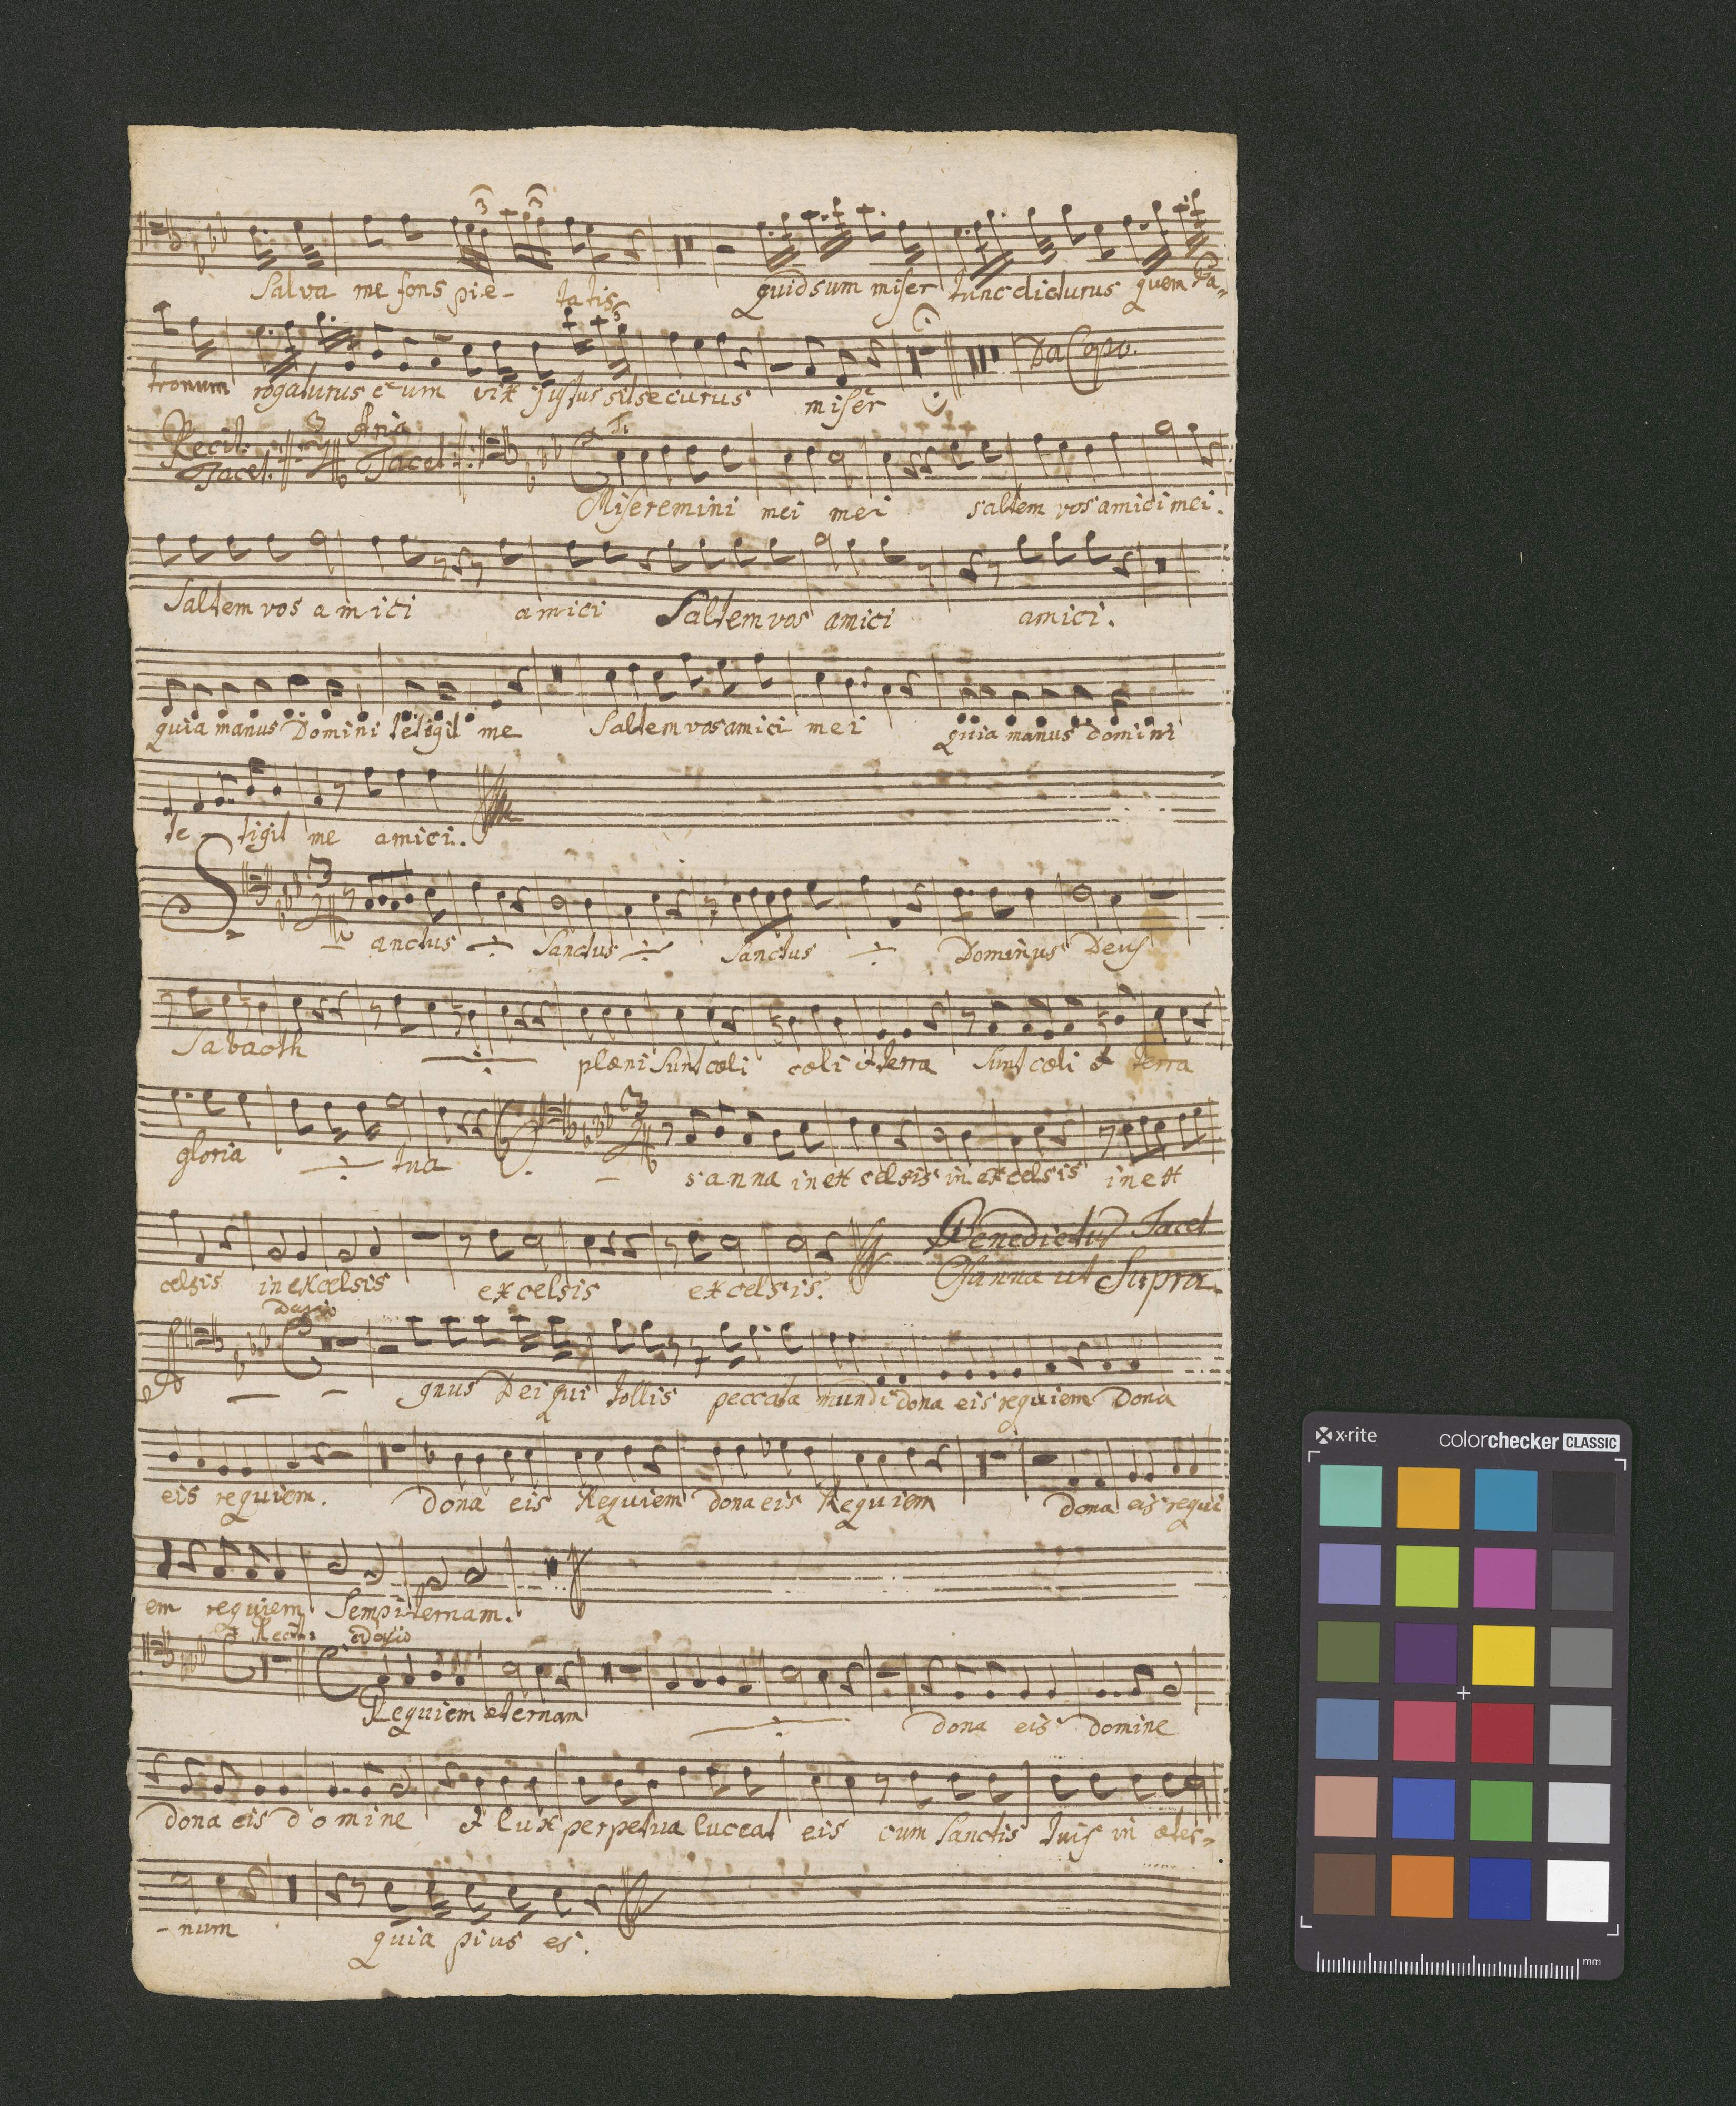 Salva me fons pie- tatis quid sum miser tunc dicturus quem Pa-
tronum rogaturus c um vix justus sit securus miser Da Capo.
Recit. Tacet. Aria Tacet
Miseremini mei mei saltem vos amici mei.
Saltem vos amici amici Saltem vos amici amici.
quia manus Domini tetigit me Saltem vos amici mei quia manus domini
te - tigit me amici.
S anctus Sanctus Sanctus Dominus Deus
Sabaoth plæni sunt cœli cœli et terra sunt cœli et terra
gloria tua O sanna in ex celsis in excelsis in ex
celsis in excelsis excelsis excelsis. Benedictus Tacet
Osanna ut Supra
A gnus Dei qui tollis peccata mundi dona eis requiem Dona
eis requiem. Dona eis Requiem dona eis Requiem dona eis requi
em requiem Sempiternam.
Recit: adagio
Requiem æternam dona eis domine
dona eis domine et lux perpetua luceat eis cum Sanctis tuis in æter-
-num quia pius es.
x-rite colorchecker CLASSIC
mm